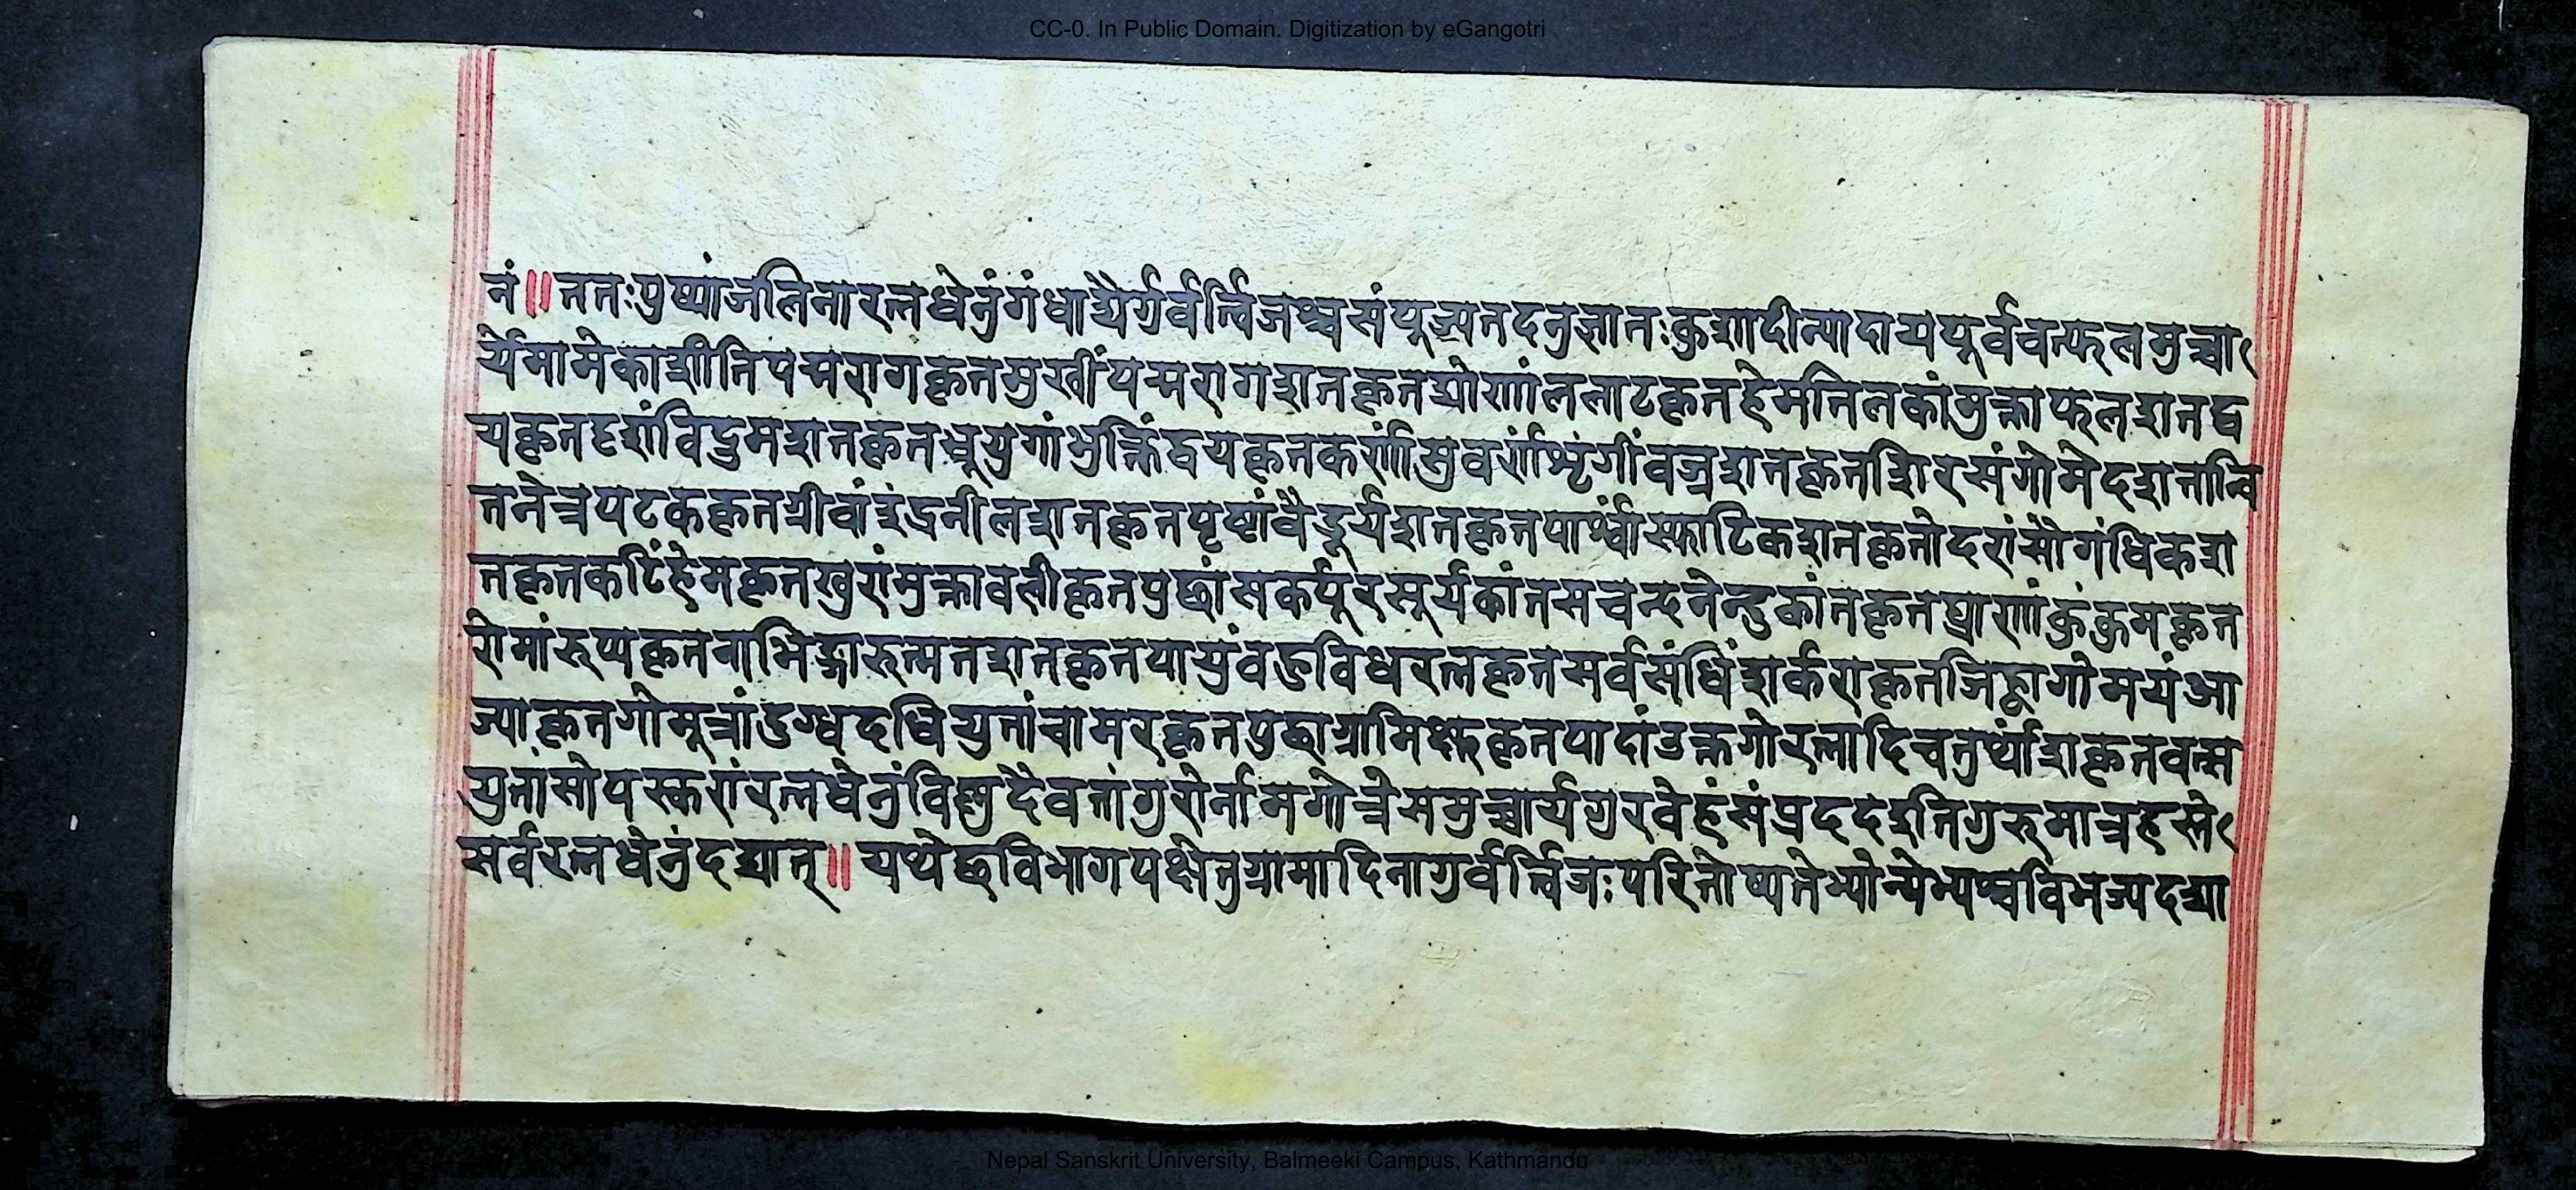 CC-0. In Public Domain. Digitization by eGangotri
नं॥ततःपुष्पांजलिनारत्नधेनुंगंधाद्यैर्गुर्वर्त्विजश्चसंपूज्यतदनुज्ञातःकुशादीन्यादायपूर्ववत्फलमुच्चा
र्येमामेकाशीतिपद्मरागकृतमुखींपद्मरागशतकृतघोणांललाटकृतहेमतिलकांमुक्ताफलशतद्व
यकृतदृशांविद्रुमशतकृतभ्रूयुगांशुक्तिद्वयकृतकर्णांसुवर्णशृंगींवज्रशतकृतशिरसंगोमेदशतान्वि
तनेत्रपटककृतग्रीवांइंद्रनीलशतकृतपृष्ठांवैडूर्यशतकृतपार्श्वांस्फाटिकशतकृतोदरांसौगंधिकश
तकृतकटिंहेमकृतखुरांमुक्तावलीकृतपुछांसकर्पूरसूर्यकांतसचन्दनेन्दुकांतकृतघ्राणांकुंकुमकृत
रोमांरुप्यकृतनाभिङ्गारुत्मतशतकृतपायुंवहुविधरत्नकृतसर्वसंधिंशर्कराकृतजिह्वागोमयंआ
ज्याकृतगोमूत्रांदुग्धदधियुतांचामरकृतपुछाग्रामिक्षुकृतपादांउक्तगोरत्नादिचतुर्थांशकृतवत्स
युतांसोपस्करांरत्नधेनुंविष्णुदैवतांगुरोर्नामगोत्रेसमुच्चार्यगुरवेहंसंप्रददेइतिगुरुमात्रहस्ते
सर्वरत्नधेनुंदद्यात्॥यथेछविभागपक्षेतुग्रामादिनागुर्वर्त्विजःपरितोष्यतेभ्योन्येभ्यश्चविभज्यदद्या
Nepal Sanskrit University, Balmeeki Campus, Kathmandu